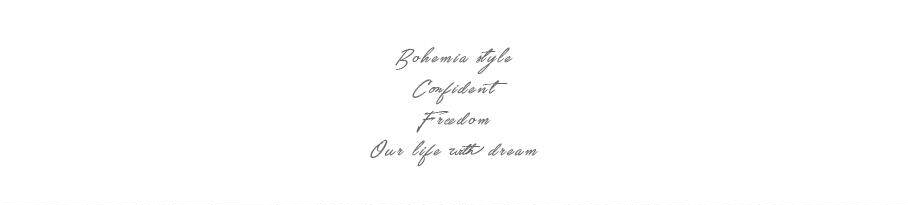 Bohemia style
Confident
Freedom
Our life with dream